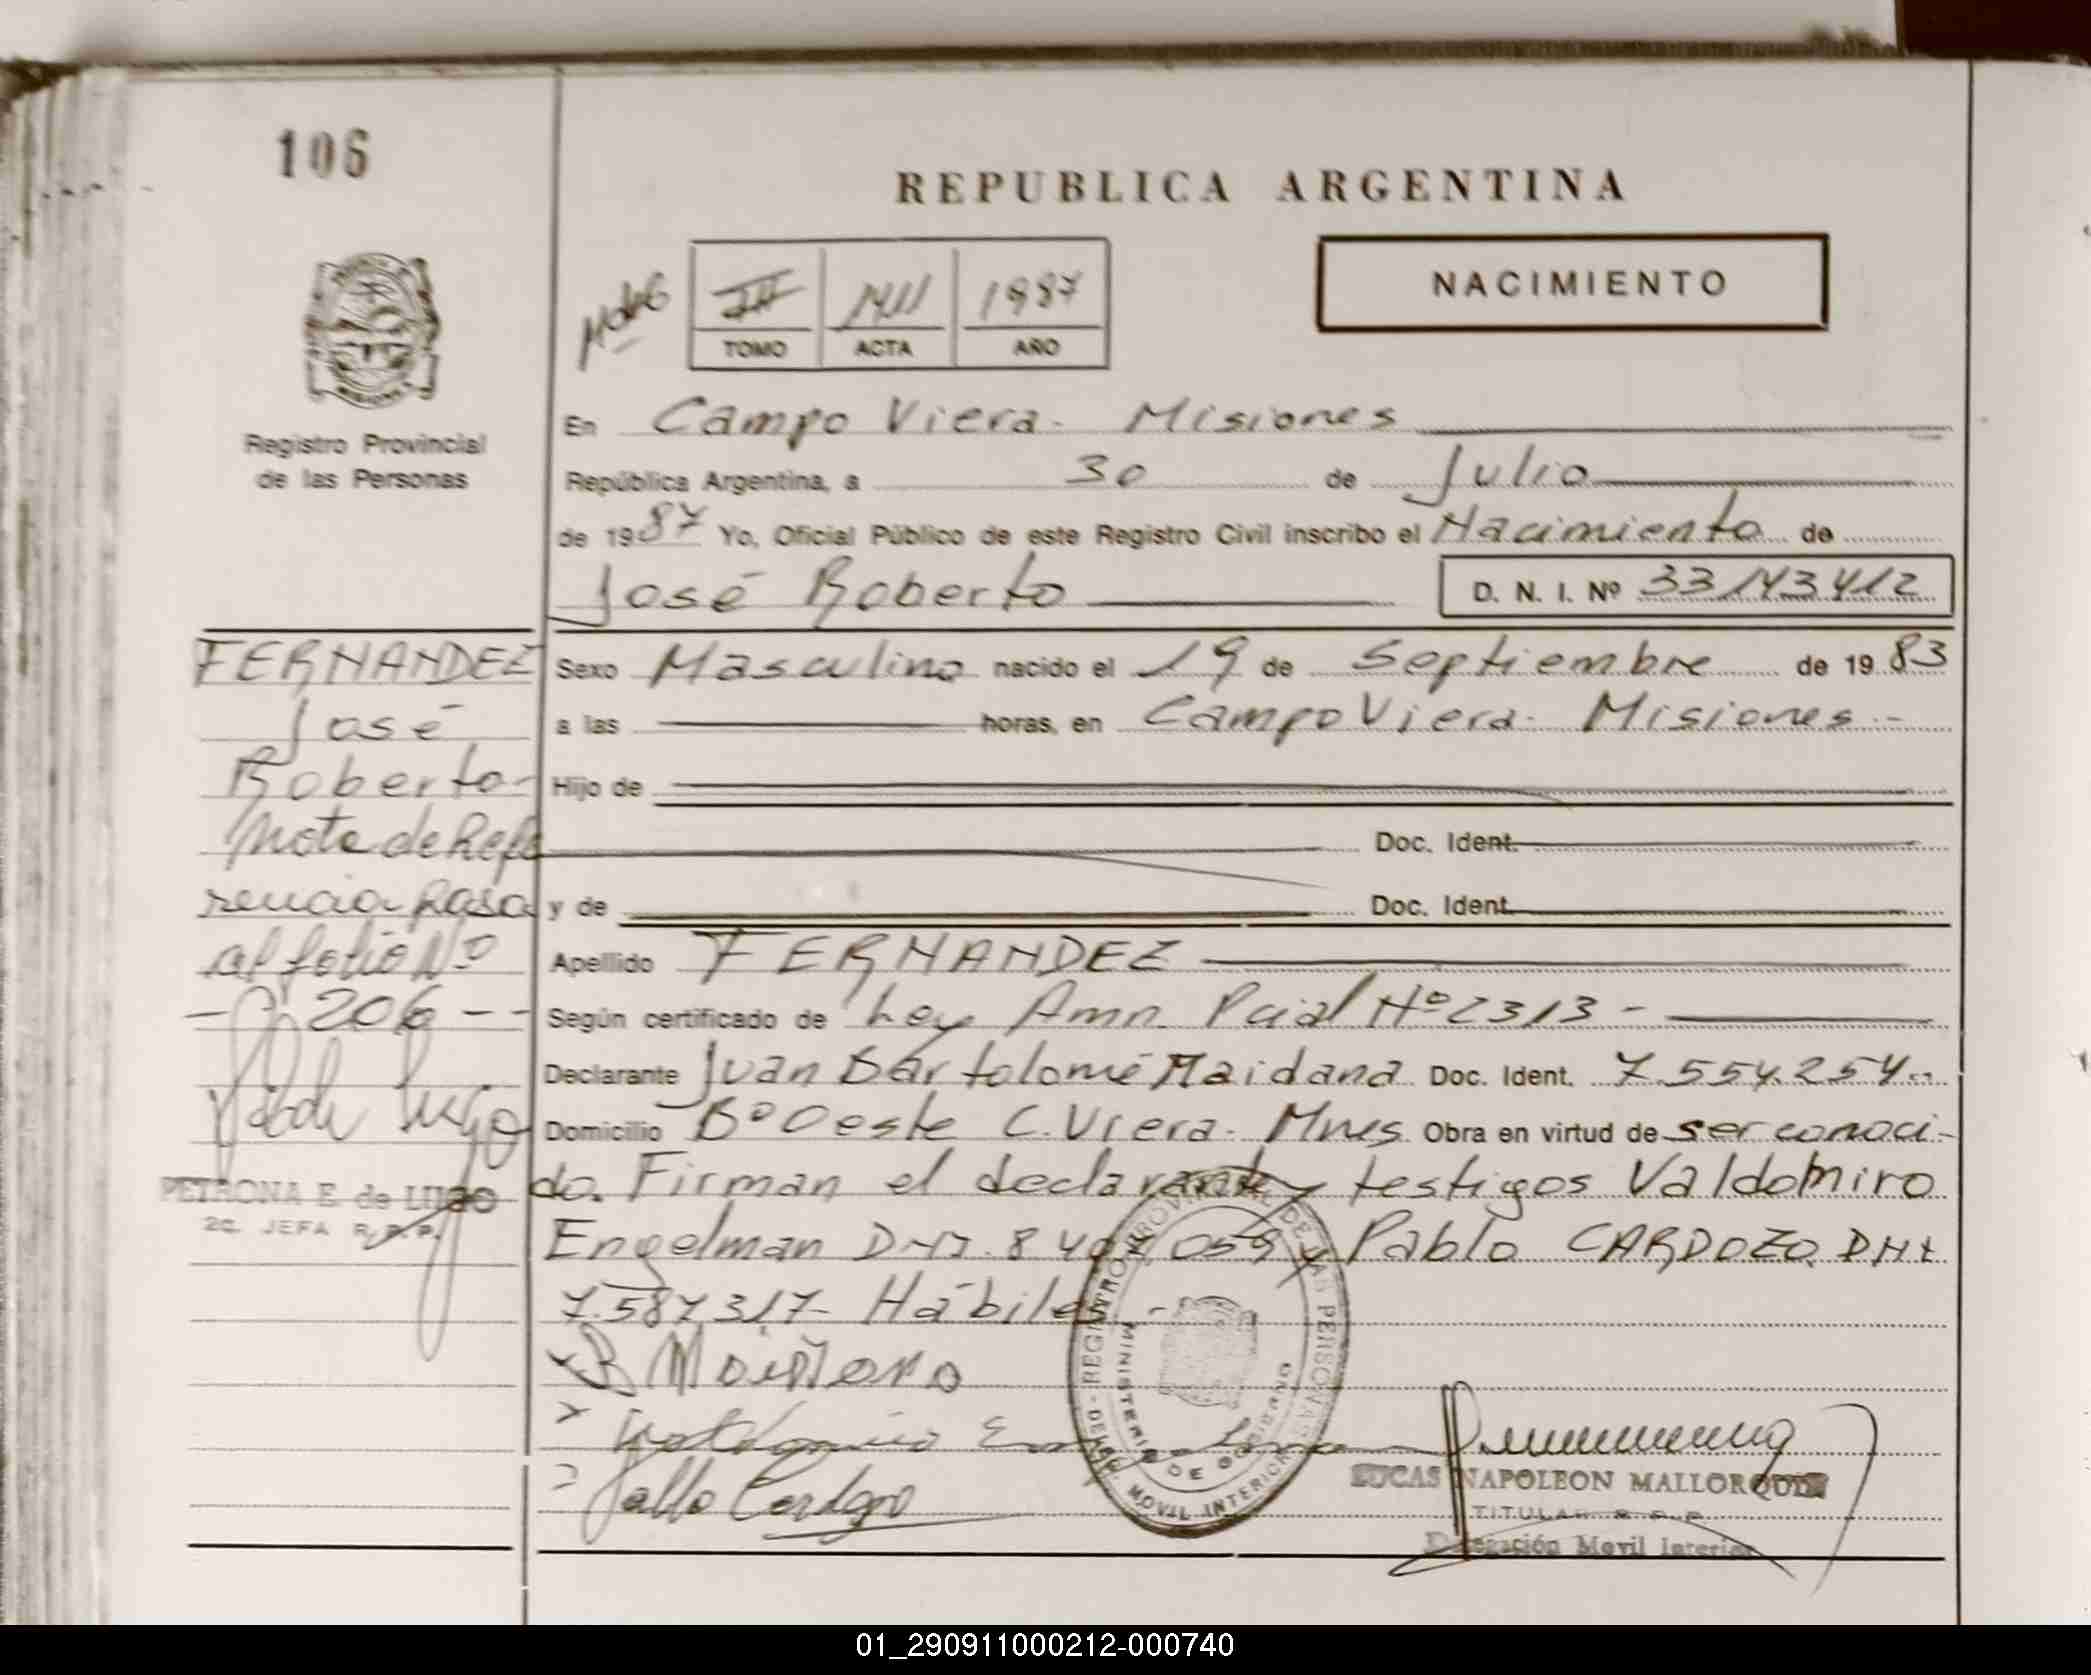 106
REPUBLICA ARGENTINA
NACIMIENTO
III 1987
TOMO ACTA AÑO
Registro Provincial
de las Personas
En Campo Viera - Misiones
República Argentina, a 30 de Julio
de 1987 Yo, Oficial Público de este Registro Civil inscribo el Nacimiento de
José Roberto D. N. I. Nº 33143412
FERNANDEZ
José
Roberto -
Nota de Refe
rencia Pasa
al folio Nº
- 206 - -
PETRONA E. de LUGO
2a. JEFA R.P.P.
Sexo Masculino nacido el 19 de Septiembre de 1983
a las horas, en Campo Viera - Misiones -
Hijo de
Doc. Ident.
y de Doc. Ident.
Apellido FERNANDEZ
Según certificado de Ley Amn. Pcial Nº 2313 -
Declarante Juan Bartolomé Maidana Doc. Ident. 7.554.254 -
Domicilio Bº Oeste C. Viera - Mnes. Obra en virtud de ser conoci-
do. Firman el declarante y testigos Valdomiro
Engelman DNI. y Pablo CARDOZO, DNI
7.587317 - Hábiles -
Pablo Cardozo
REGISTRO PROVINCIAL DE LAS PERSONAS
MINISTERIO DE GOBIERNO
MOVIL INTERIOR
LUCAS NAPOLEON MALLORQUIN
TITULAR R.P.P.
Delegación Movil Interior
01_290911000212-000740